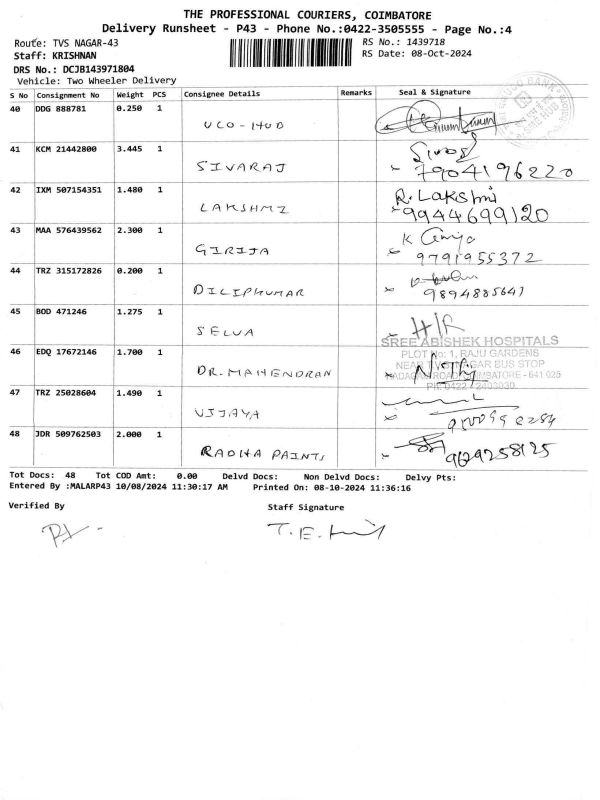 THE PROFESSIONAL COURIERS, COIMBATORE
Delivery Runsheet - P43 - Phone No.:0422-3505555 - Page No.:4
Route: TVS NAGAR-43 RS No.: 1439718
Staff: KRISHNAN RS Date: 08-Oct-2024
DRS No.: DCJB143971804
Vehicle: Two Wheeler Delivery
S No Consignment No Weight PCS Consignee Details Remarks Seal & Signature
40 DDG 888781 0.250 1 UCO-HUB
41 KCM 21442800 3.445 1 SIVARAJ 7904196220
42 IXM 507154351 1.480 1 LAKSHMI R. Lakshmi
9944699120
43 MAA 576439562 2.300 1 GIRIJA K Girija
9791955372
44 TRZ 315172826 0.200 1 DILIPKUMAR 9894885641
45 BOD 471246 1.275 1 SELVA H/R
SREE ABISHEK HOSPITALS
PLOT No: 1, RAJU GARDENS
46 EDQ 17672146 1.700 1 DR.MAHENDRAN NEAR TVS NAGAR BUS STOP
COIMBATORE - 641 025
PH: 0422 / 2403030
47 TRZ 25028604 1.490 1 VIJAYA
48 JDR 509762503 2.000 1 RADHA PAINTS 9629258125
Tot Docs: 48 Tot COD Amt: 0.00 Delvd Docs: Non Delvd Docs: Delvy Pts:
Entered By :MALARP43 10/08/2024 11:30:17 AM Printed On: 08-10-2024 11:36:16
Verified By Staff Signature